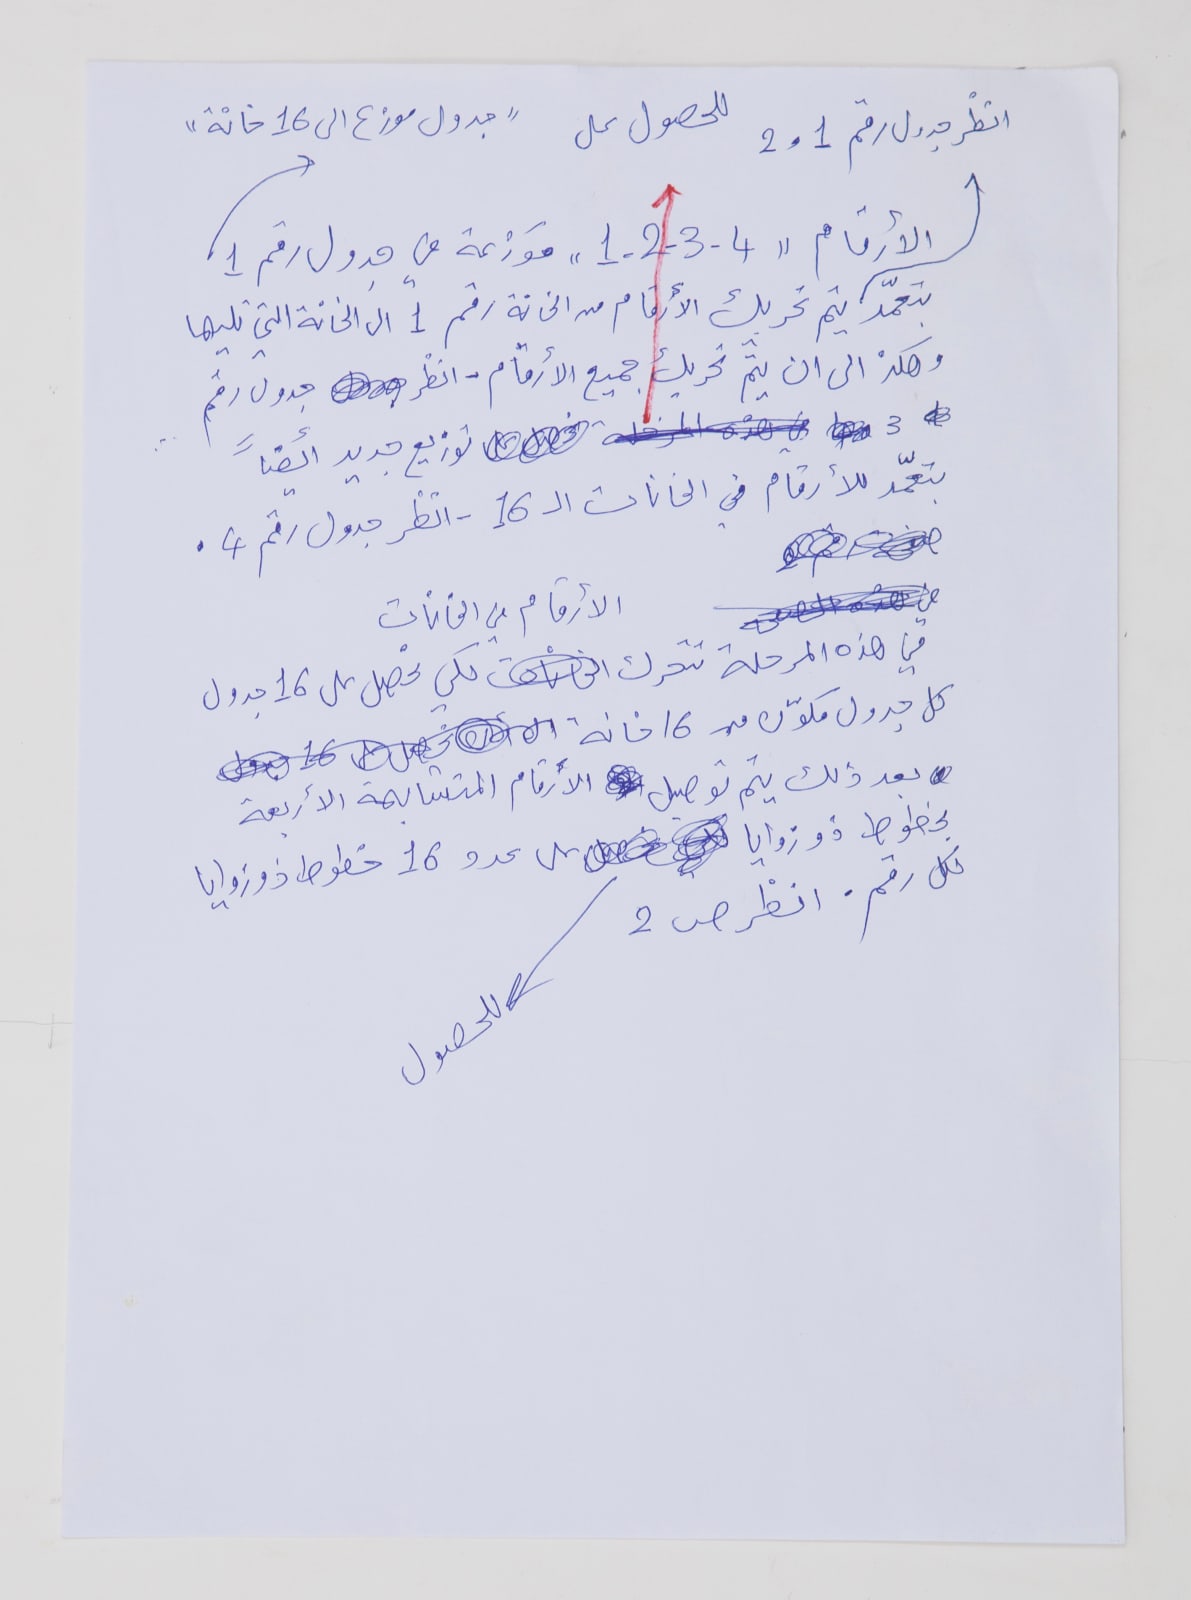 انظر جدول رقم 1 و 2 للحصول على "جدول موزع الى 16 خانة"
الأرقام "1-2-3-4" موَزعة في جدول رقم 1
بتعمّد يتم تحريك الأرقام من الخانة رقم 1 الى الخانة التي تليها
وهكذ الى ان يتم تحريك جميع الأرقام - انظر جدول رقم
3 في هذه المرحلة توزيع جديد أيضاً
بتعمّد للأرقام في الخانات الـ 16 - انظر جدول رقم 4 .
في هذه
الأرقام في الخانات
في هذه المرحلة تتحرك الخانات لكي نحصل على 16 جدول
كل جدول مكوّن من 16 خانة نحصل على 16 جدول
بعد ذلك يتم توصيل الأرقام المتشابهة الأربعة
بخطوط ذو زوايا على عدد 16 خطوط ذو زوايا
لكل رقم . انظر ص 2
للحصول